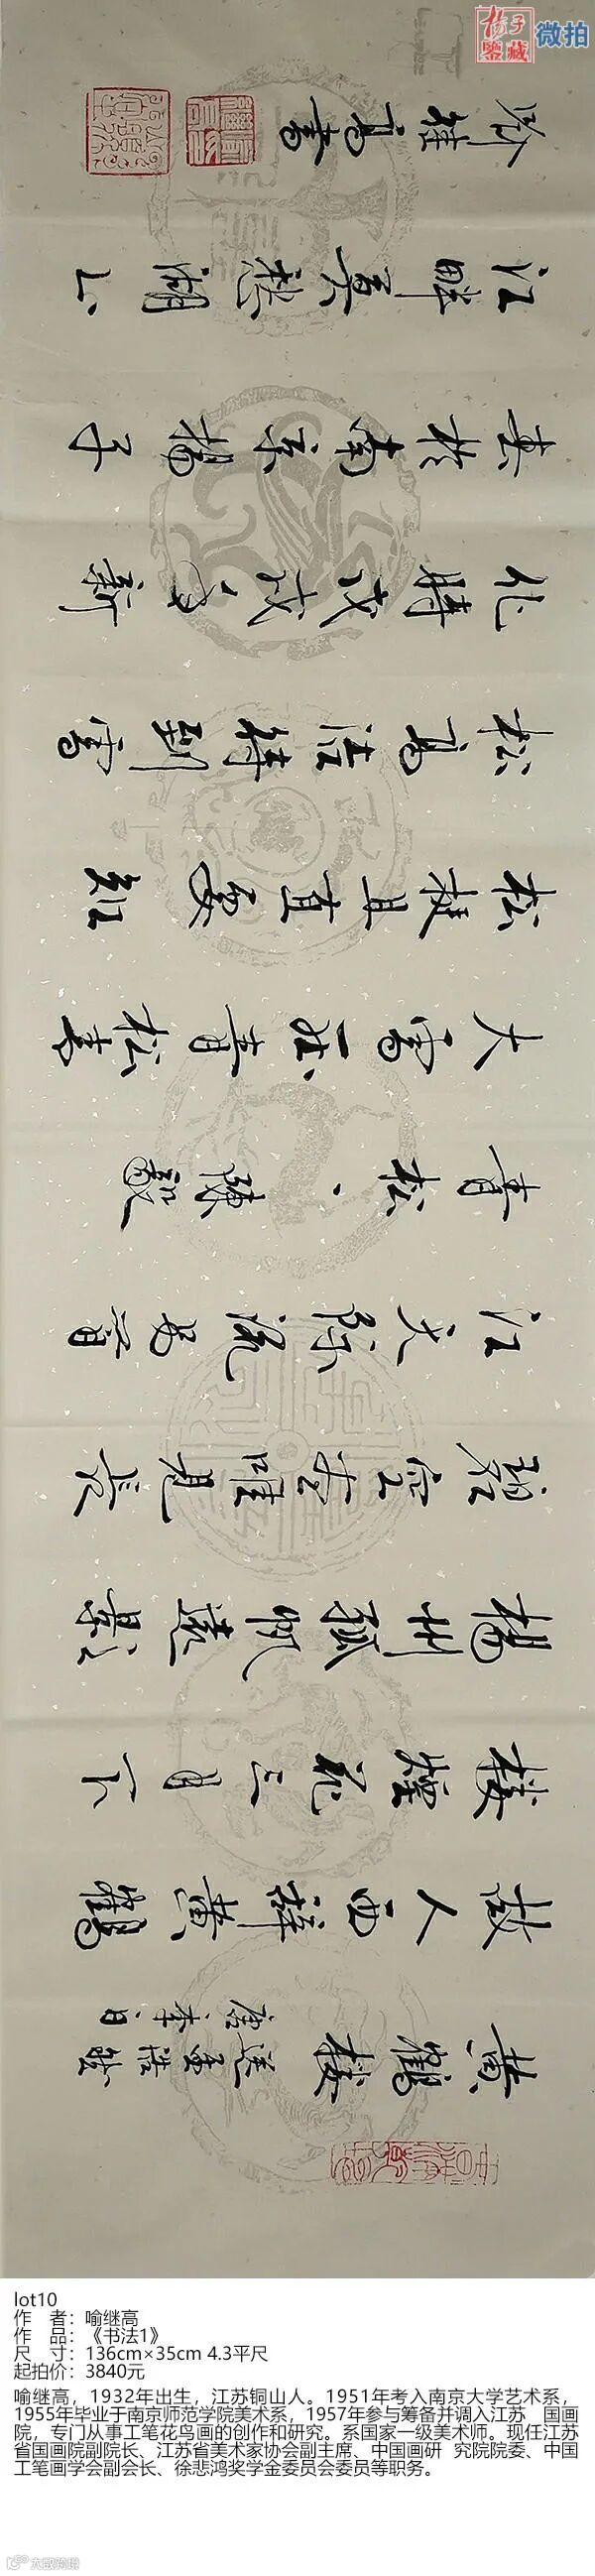 扬子
鉴藏
微拍
黄鶴楼
送孟浩然
唐李白
故人西辞黄鶴
楼煙花三月下
揚州孤帆遠影
碧空尽唯見长
江天际流
青松 陳毅
大雪压青松青
松挺且直要知
松高洁待到雪
化时戊戌年新
春於南京揚子
江畔莫愁湖上
喻继高書
lot10
作 者：喻继高
作 品：《书法1》
尺 寸：136cm×35cm 4.3平尺
起拍价：3840元
喻继高，1932年出生，江苏铜山人。1951年考入南京大学艺术系，
1955年毕业于南京师范学院美术系，1957年参与筹备并调入江苏 国画
院，专门从事工笔花鸟画的创作和研究。系国家一级美术师。现任江苏
省国画院副院长、江苏省美术家协会副主席、中国画研 究院院委、中国
工笔画学会副会长、徐悲鸿奖学金委员会委员等职务。